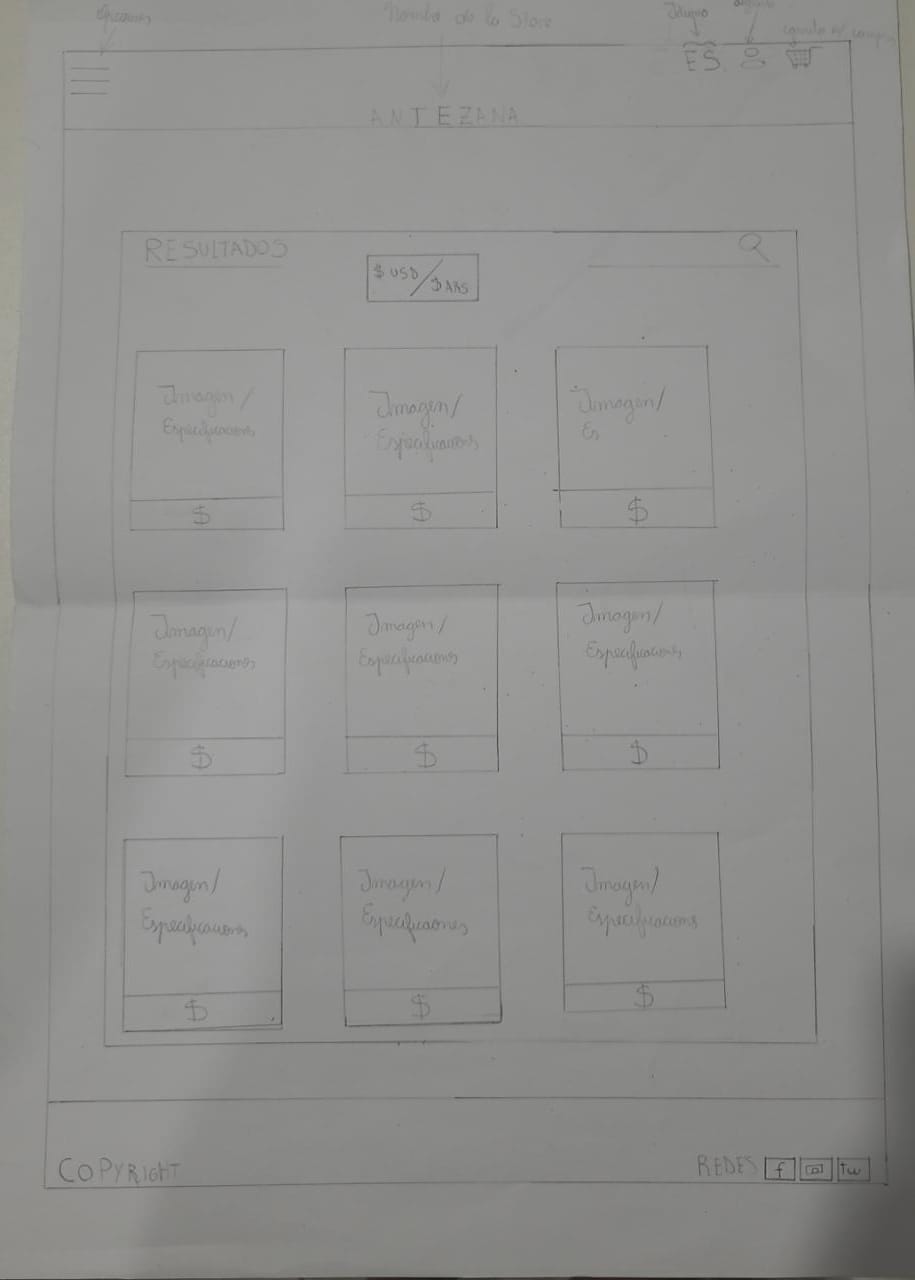 Opciones
Nombre de la Store
Idioma
carrito
ES
ANTEZANA
RESULTADOS
$ USD/
$ ARS
Imagen/
Especificaciones
Imagen/
Especificacions
Imagen/
Es
$
$
$
Imagen/
Especificaciones
Imagen/
Especificacions
Imagen/
Especificacions
$
$
$
Imagen/
Especificaciones
Imagen/
Especificaones
Imagen/
Especificacions
$
$
$
COPYRIGHT
REDES f tw